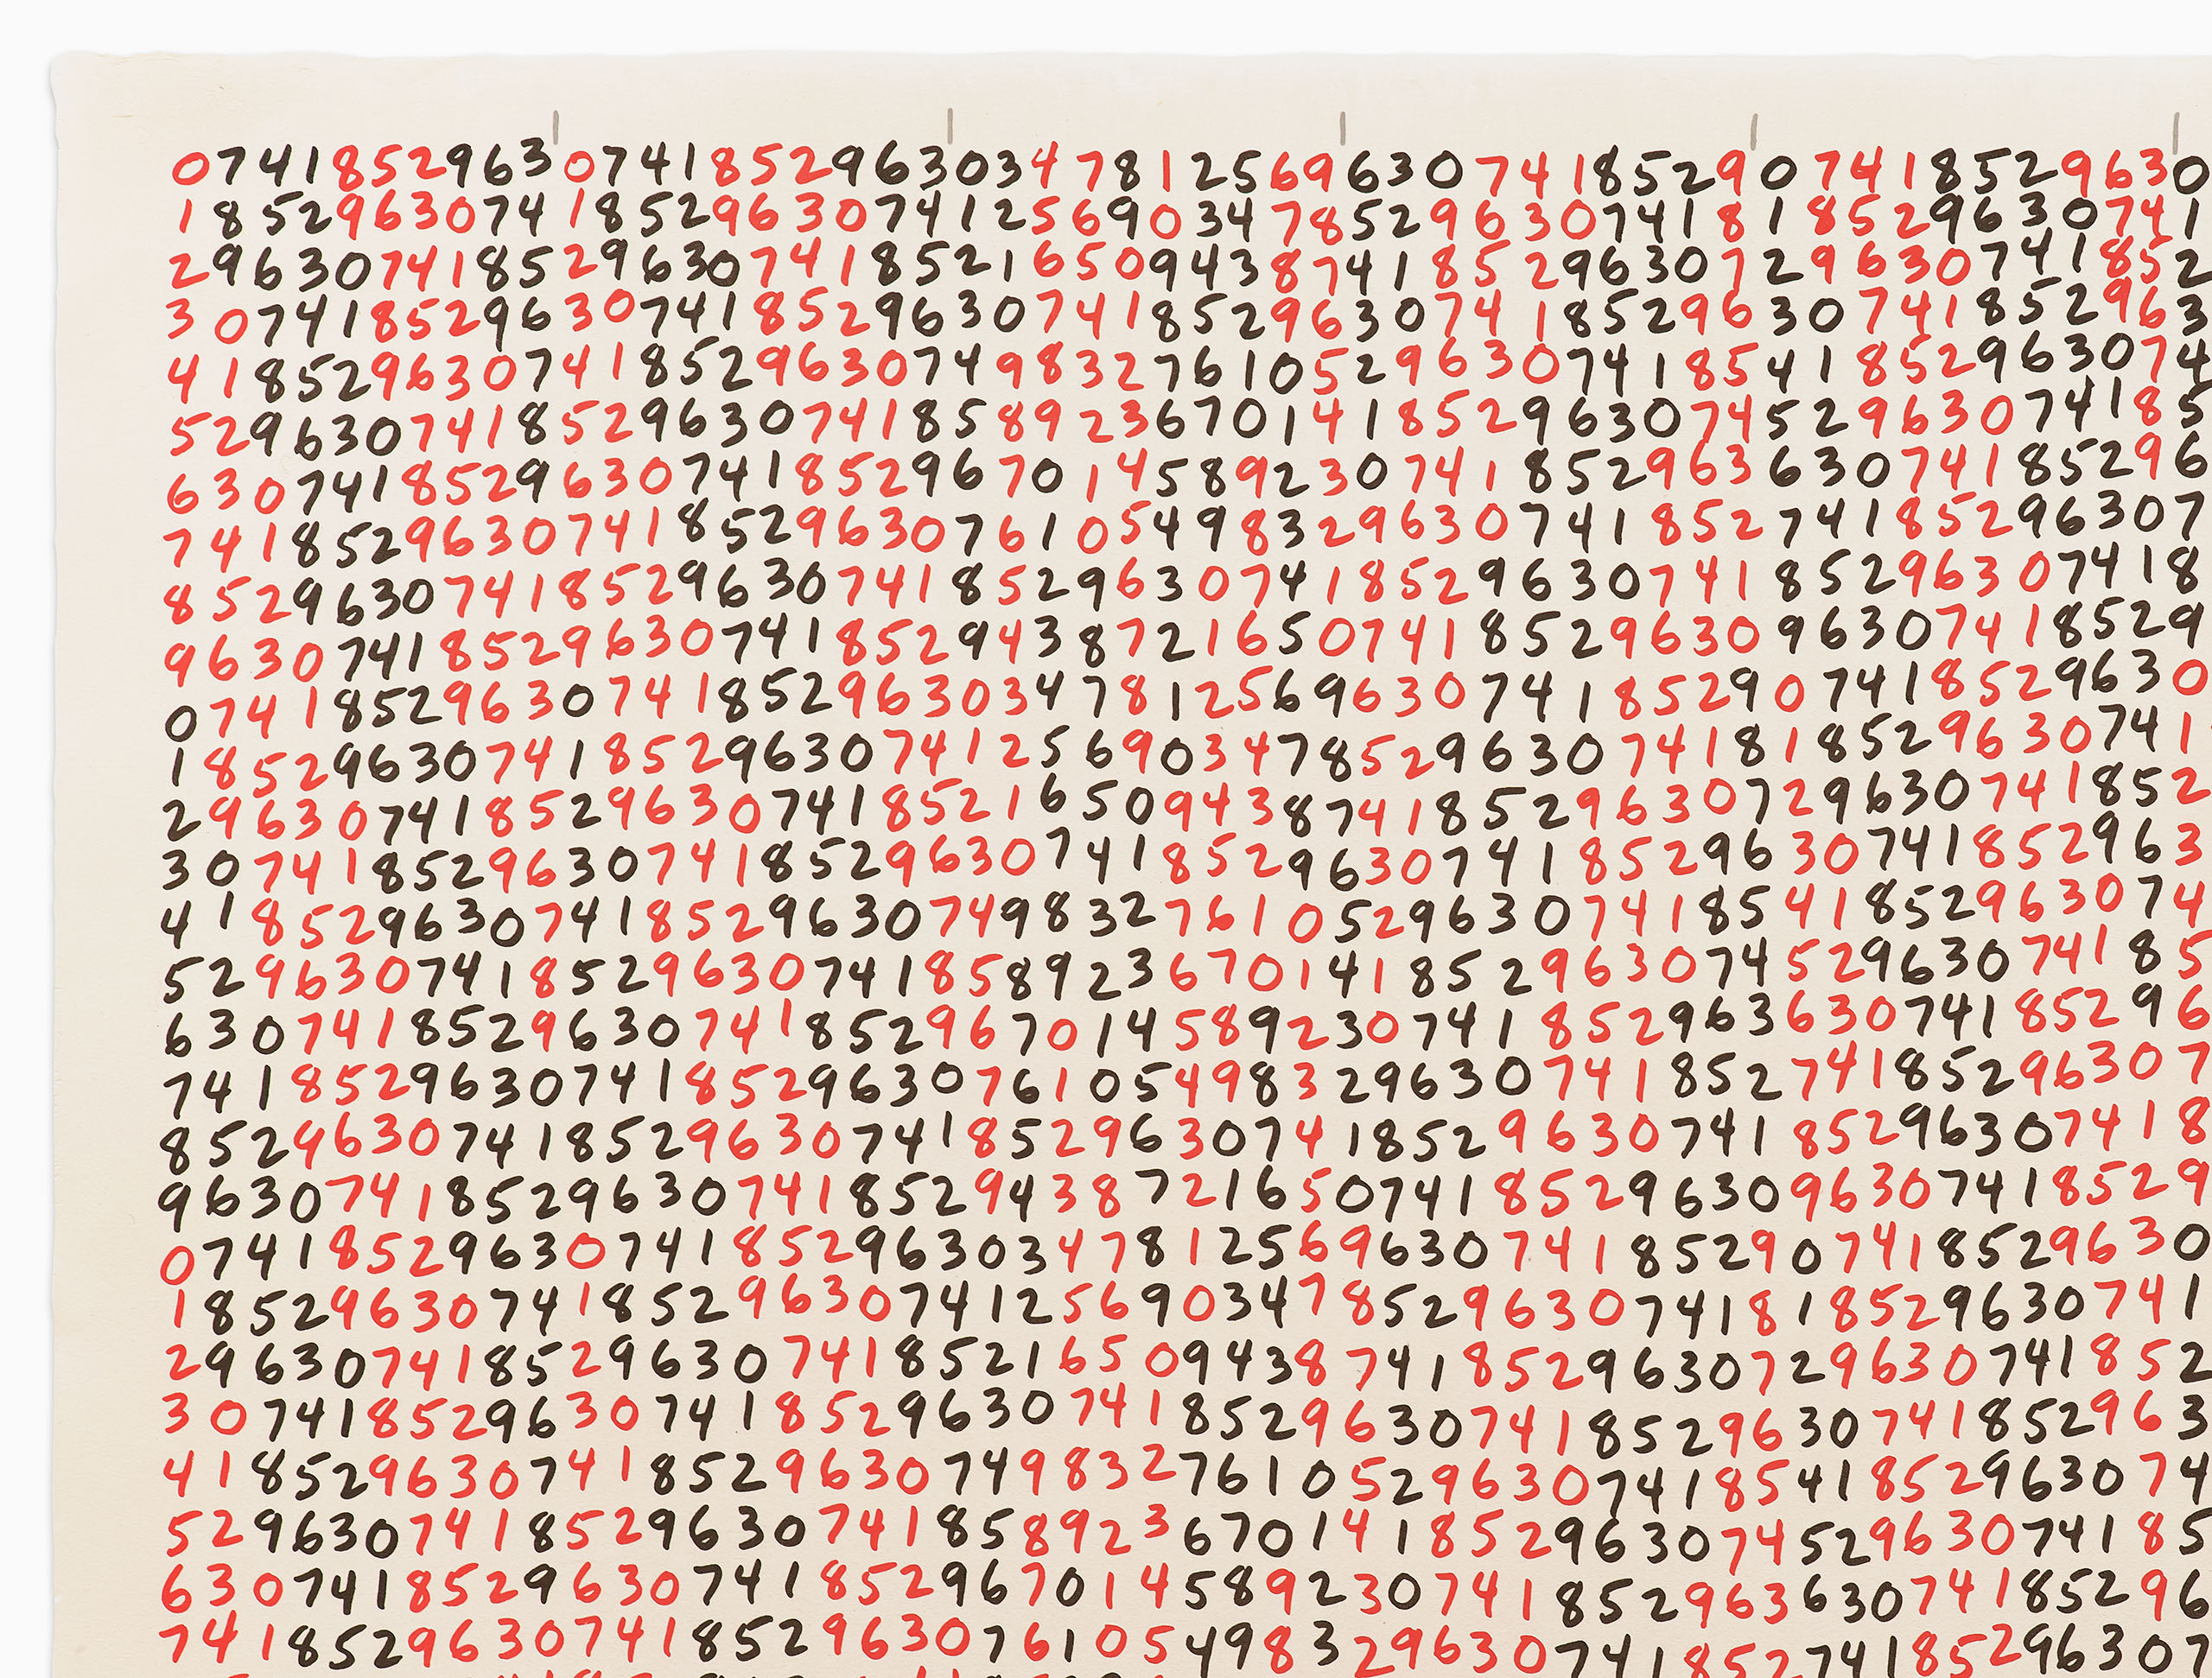 074185296307418529630347812569630741852907418529630
185296307418529630741256903478529630741818529630741
296307418529630741852165094387418529630729630741852
307418529630741852963074185296307418529630741852963
418529630741852963074983276105296307418541852963074
529630741852963074185892367014185296307452963074185
630741852963074185296701458923074185296363074185296
741852963074185296307610549832963074185274185296307
852963074185296307418529630741852963074185296307418
963074185296307418529438721650741852963096307418529
074185296307418529630347812569630741852907418529630
185296307418529630741256903478529630741818529630741
296307418529630741852165094387418529630729630741852
307418529630741852963074185296307418529630741852963
418529630741852963074983276105296307418541852963074
529630741852963074185892367014185296307452963074185
630741852963074185296701458923074185296363074185296
741852963074185296307610549832963074185274185296307
852963074185296307418529630741852963074185296307418
963074185296307418529438721650741852963096307418529
074185296307418529630347812569630741852907418529630
185296307418529630741256903478529630741818529630741
296307418529630741852165094387418529630729630741852
307418529630741852963074185296307418529630741852963
418529630741852963074983276105296307418541852963074
529630741852963074185892367014185296307452963074185
630741852963074185296701458923074185296363074185296
741852963074185296307610549832963074185274185296307